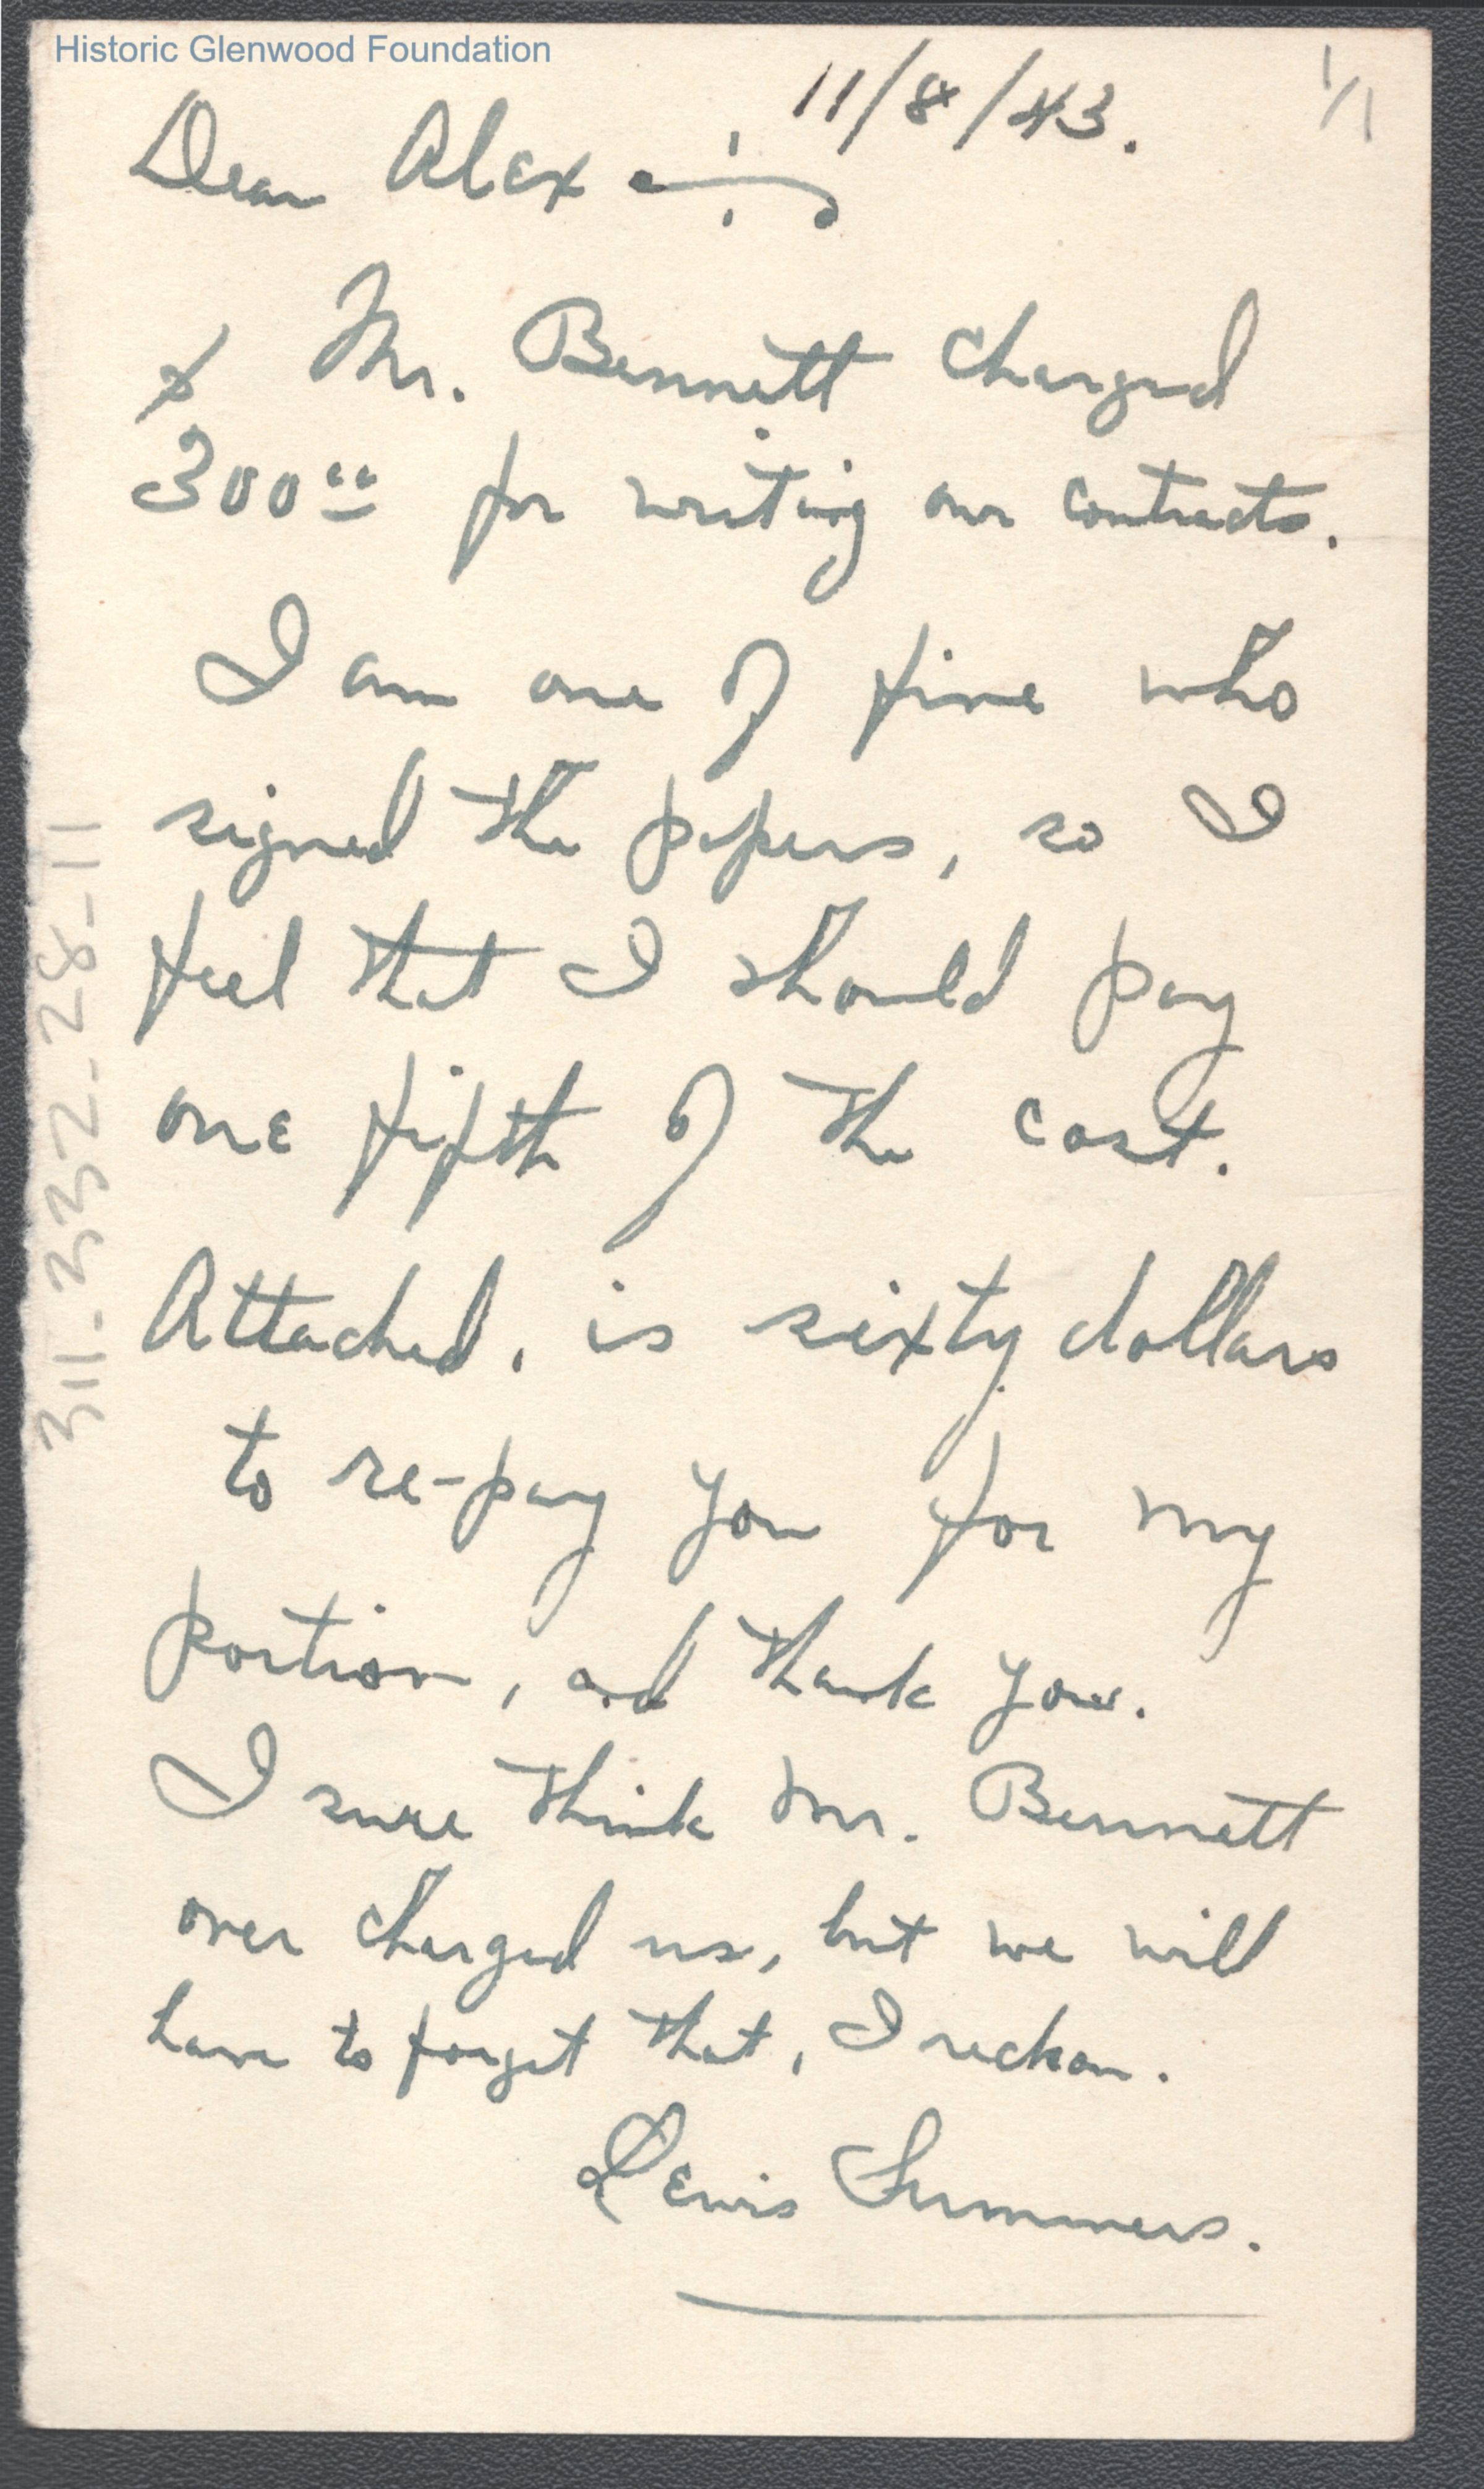 Historic Glenwood Foundation
11/8/43.
1/1
Dear Alex :
$ Mr. Bennett charged
300.00 for writing our contracts.
I am one of five who
signed the papers, so I
feel that I should pay
one fifth of the cost.
Attached, is sixty dollars
to re-pay you for my
portion, and thank you.
I sure think Mr. Bennett
over charged us, but we will
have to forget that, I reckon.
Lewis Summers.
311-332-28-11